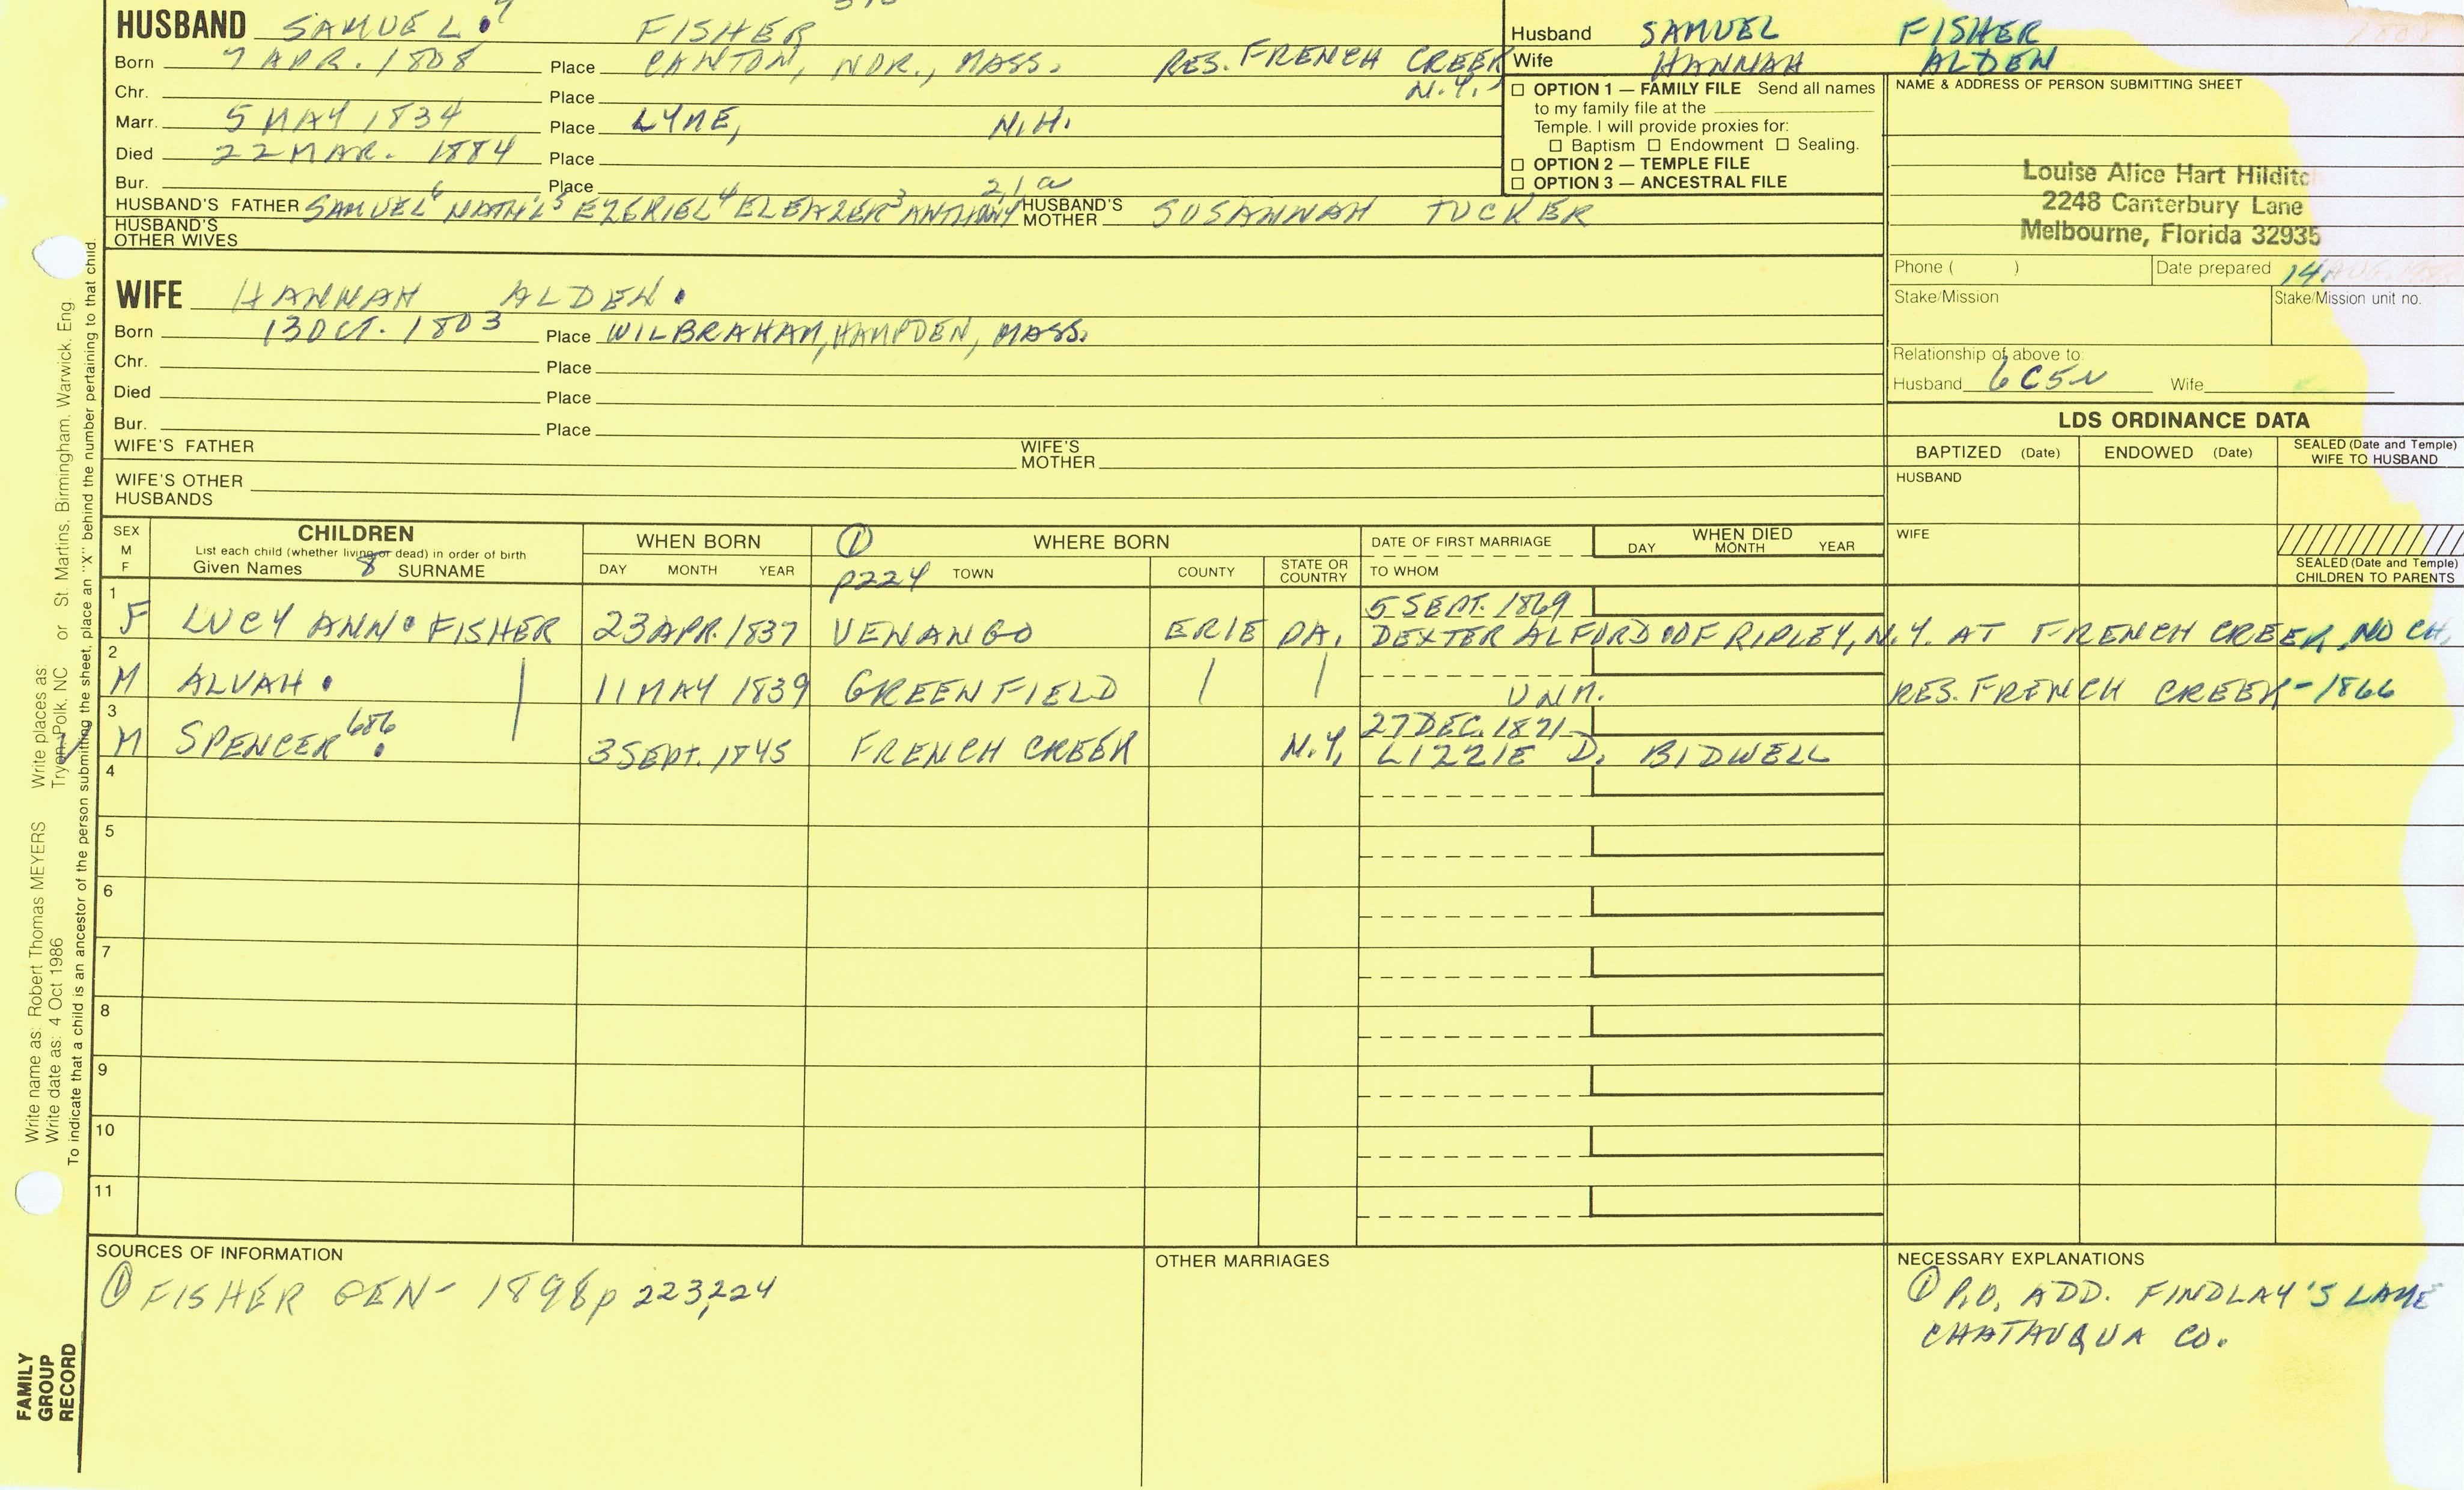 HUSBAND SAMUEL. 7 FISHER
Born 7 APR. 1808 Place CANTON, NOR., MASS. RES. FRENCH CREEK
N.Y.
Chr. Place
Marr. 5 MAY 1834 Place LYME, N.H.
Died 22 MAR. 1884 Place
Bur. Place
HUSBAND'S FATHER SAMUEL 6 NATH'L 5 EZERIEL 4 ELEAZER 3 ANTHONY 2,1 a HUSBAND'S MOTHER SUSANNAH TUCKER
HUSBAND'S OTHER WIVES
WIFE HANNAH ALDEN.
Born 13 OCT. 1803 Place WILBRAHAM, HAMPDEN, MASS.
Chr. Place
Died Place
Bur. Place
WIFE'S FATHER WIFE'S MOTHER
WIFE'S OTHER HUSBANDS
Husband SAMUEL FISHER
Wife HANNAH ALDEN
☐ OPTION 1 — FAMILY FILE Send all names
to my family file at the
Temple. I will provide proxies for:
☐ Baptism ☐ Endowment ☐ Sealing.
☐ OPTION 2 — TEMPLE FILE
☐ OPTION 3 — ANCESTRAL FILE
NAME & ADDRESS OF PERSON SUBMITTING SHEET
Louise Alice Hart Hilditc
2248 Canterbury Lane
Melbourne, Florida 32935
Phone ( ) Date prepared 14
Stake/Mission Stake/Mission unit no.
Relationship of above to:
Husband 6C5N Wife
LDS ORDINANCE DATA
BAPTIZED (Date) ENDOWED (Date) SEALED (Date and Temple) WIFE TO HUSBAND
HUSBAND
WIFE
SEALED (Date and Temple) CHILDREN TO PARENTS
SEX M F CHILDREN WHEN BORN ① WHERE BORN DATE OF FIRST MARRIAGE WHEN DIED
List each child (whether living or dead) in order of birth DAY MONTH YEAR
Given Names 8 SURNAME DAY MONTH YEAR p224 TOWN COUNTY STATE OR COUNTRY TO WHOM
5 SEPT. 1869
1 F LUCY ANN. FISHER 23 APR. 1837 VENANGO ERIE PA. DEXTER ALFORD OF RIPLEY, N.Y. AT FRENCH CREEK, NO CH.
2 M ALVAH. | 11 MAY 1839 GREENFIELD | | UNM. RES. FRENCH CREEK - 1866
27 DEC. 1871
3 M SPENCER. 686 3 SEPT. 1845 FRENCH CREEK N.Y. LIZZIE D. BIDWELL
4
5
6
7
8
9
10
11
SOURCES OF INFORMATION
① FISHER GEN - 1898 p 223,224
OTHER MARRIAGES
NECESSARY EXPLANATIONS
① P.O. ADD. FINDLAY'S LAKE
CHATAUQUA CO.
Write name as: Robert Thomas MEYERS Write places as: Tryon, Polk, NC or St. Martins, Birmingham, Warwick, Eng
Write date as: 4 Oct 1986
To indicate that a child is an ancestor of the person submitting the sheet, place an "X" behind the number pertaining to that child.
FAMILY
GROUP
RECORD